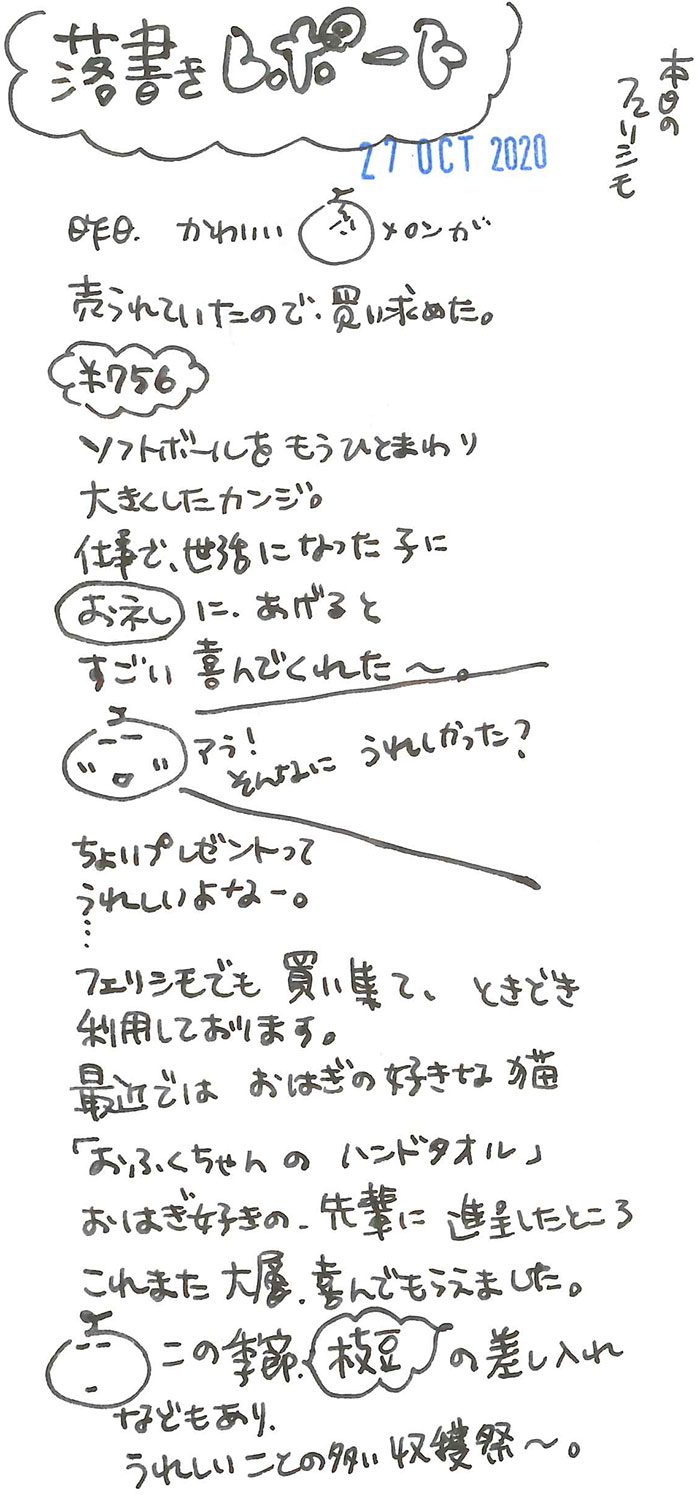 落書きレポート
本日の
フェリシモ
27 OCT 2020
昨日、かわいいメロンが
売られていたので、買い求めた。
¥756
ソフトボールをもうひとまわり
大きくしたカンジ。
仕事で、世話になった子に
お礼に、あげると
すごい喜んでくれた〜。
アラ!
そんなにうれしかった?
ちょいプレゼントって
うれしいよなー。
⋮
フェリシモでも買い集て、ときどき
利用しております。
最近ではおはぎの好きな猫
「おふくちゃんのハンドタオル」
おはぎ好きの、先輩に進呈したところ
これまた大層、喜んでもらえました。
この季節、枝豆の差し入れ
などもあり、
うれしいことの多い収穫祭〜。